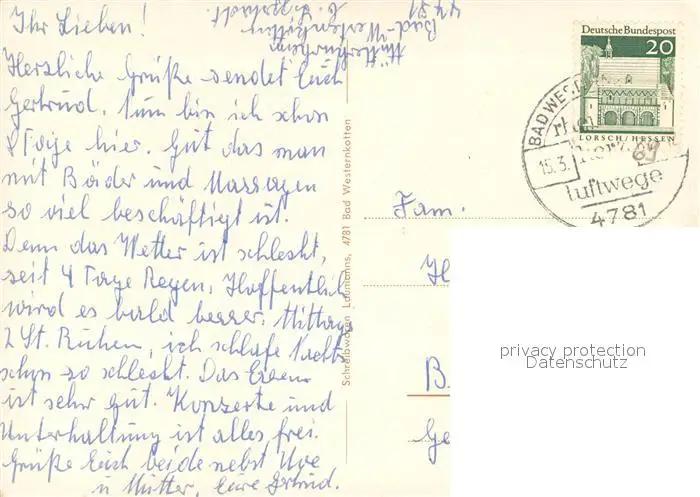 Ihr Lieben!
Herzliche Grüße sendet Euch
Gertrud. Nun bin ich schon
8 Tage hier. Gut das man
mit Bäder und Massagen
so viel beschäftigt ist.
Denn das Wetter ist schlecht,
seit 4 Tage Regen. Hoffentlich
wird es bald besser. Mittags
2 St. Ruhen, ich schlafe Nachts
schon so schlecht. Das Essen
ist sehr gut. Konzerte und
Unterhaltung ist alles frei.
Grüße Euch beide nebst Uwe
u Mutter, Eure Gertrud.
4781
Bad-Westernkotten
Schreibwaren Laumanns, 4781 Bad Westernkotten
Deutsche Bundespost
20
LORSCH/HESSEN
BAD WEST
15.3. 69
luftwege
4781
Fam.
H
B.
Ge
privacy protection
Datenschutz